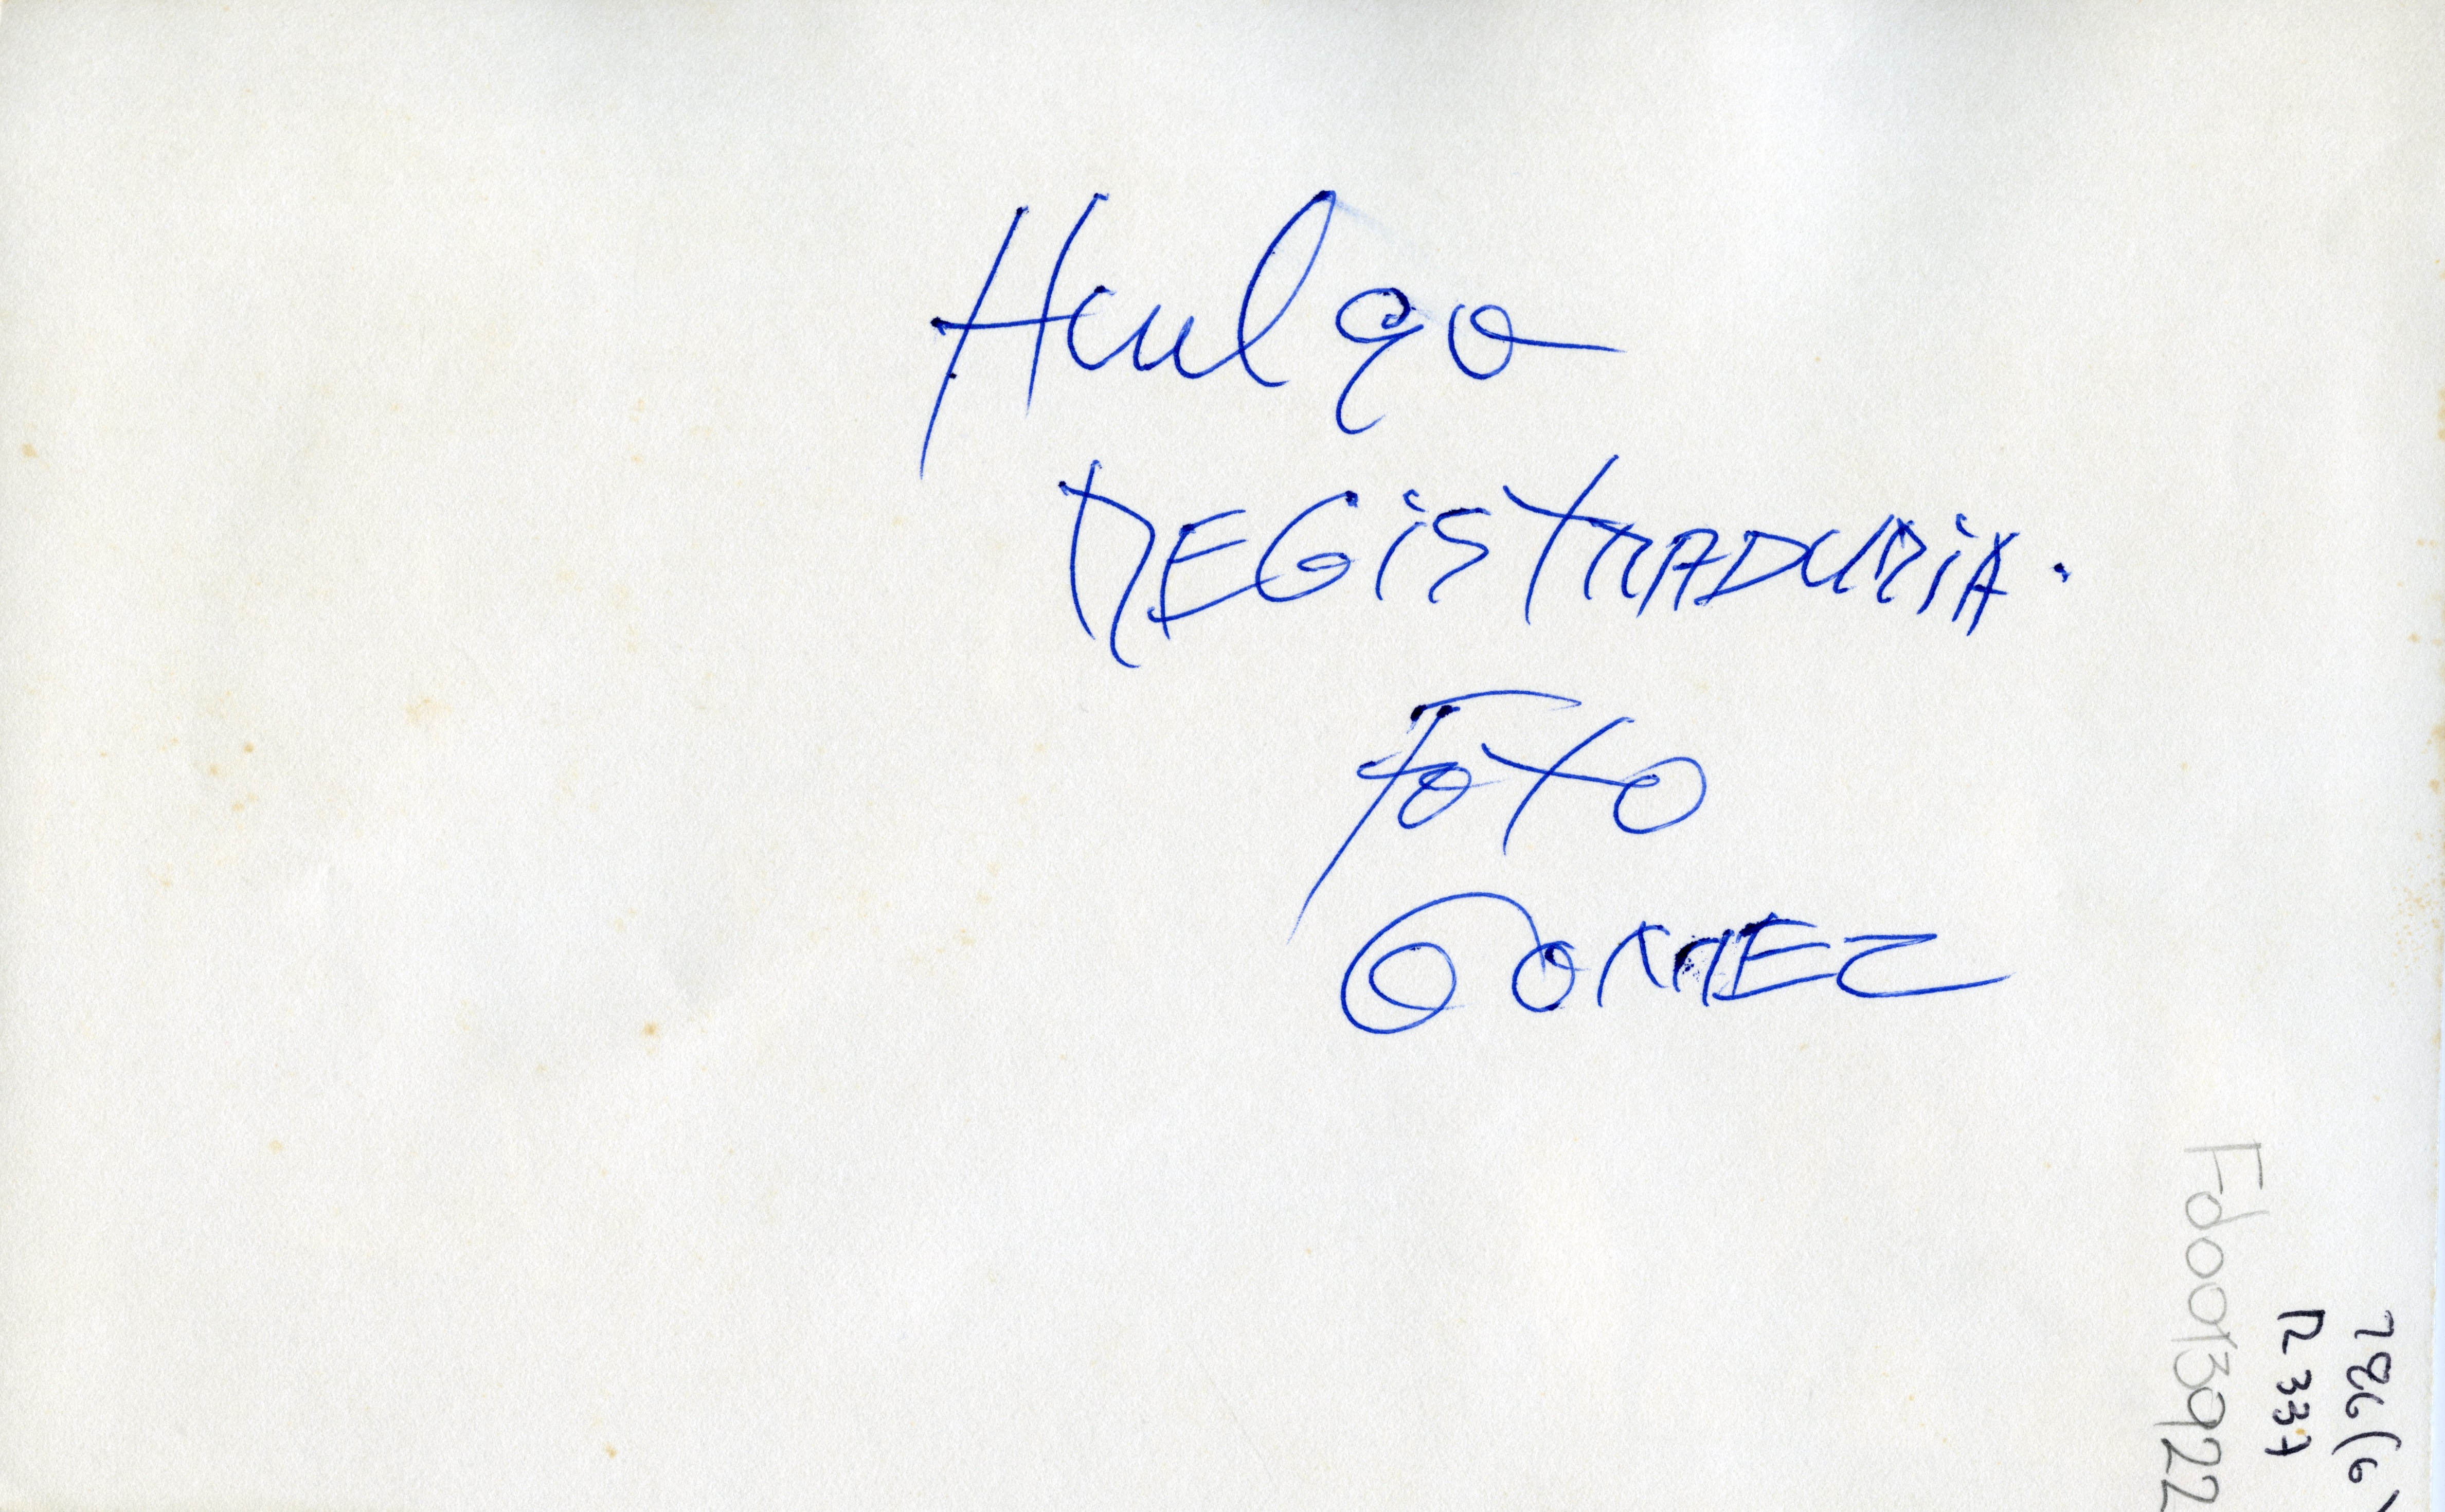 Huelga
REGISTRADURIA.
FOTO
GOMEZ
Fd0013922
R 337